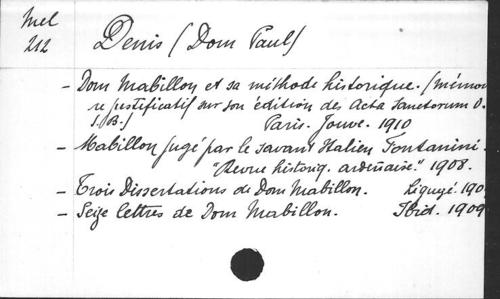 Mel
212
Denis (Dom Paul)
- Dom Mabillon et sa méthode historique. (Mémoi
re justificatif sur son édition des Acta Sanctorum O.
S. B.) Paris. Jouve. 1910
- Mabillon jugé par le savant Italien Fontanini.
"Revue historiq. ardennaise." 1908.
- Trois Dissertations de Dom Mabillon. Ligugé. 190
- Seize lettres de Dom Mabillon. Ibid. 1909